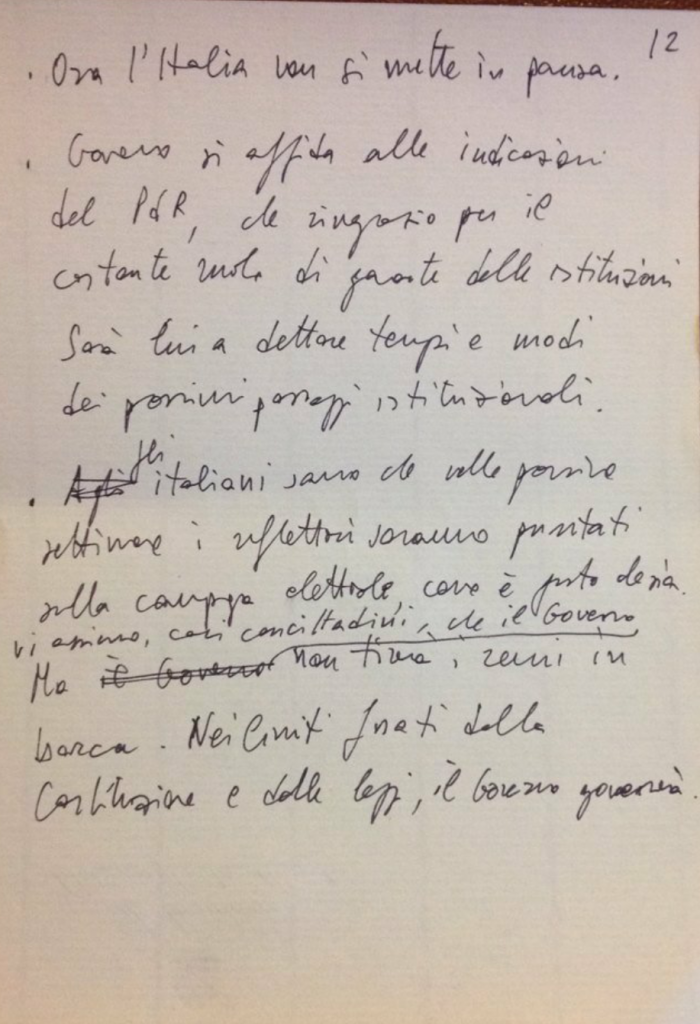 12
. Ora l'Italia non si mette in pausa.
. Governo si affida alle indicazioni
del PdR, che ringrazio per il
costante ruolo di garante delle istituzioni
Sarà lui a dettare tempi e modi
dei prossimi passaggi istituzionali.
gli
. Agli italiani sanno che nelle prossime
settimane i riflettori saranno puntati
sulla campagna elettorale, come è giusto che sia.
vi assicuro, cari concittadini, che il Governo
Ma il Governo non tirerà i remi in
barca. Nei limiti fissati dalla
Costituzione e dalle leggi, il Governo governerà.